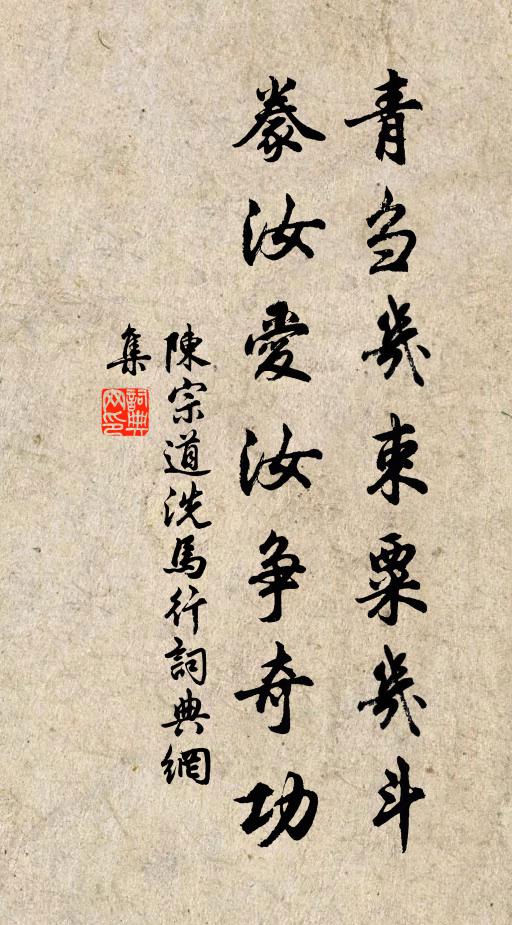 青刍幾束粟幾斗
豢汝愛汝争奇功
陳宗道洗馬行詞典網
集
詞典網印